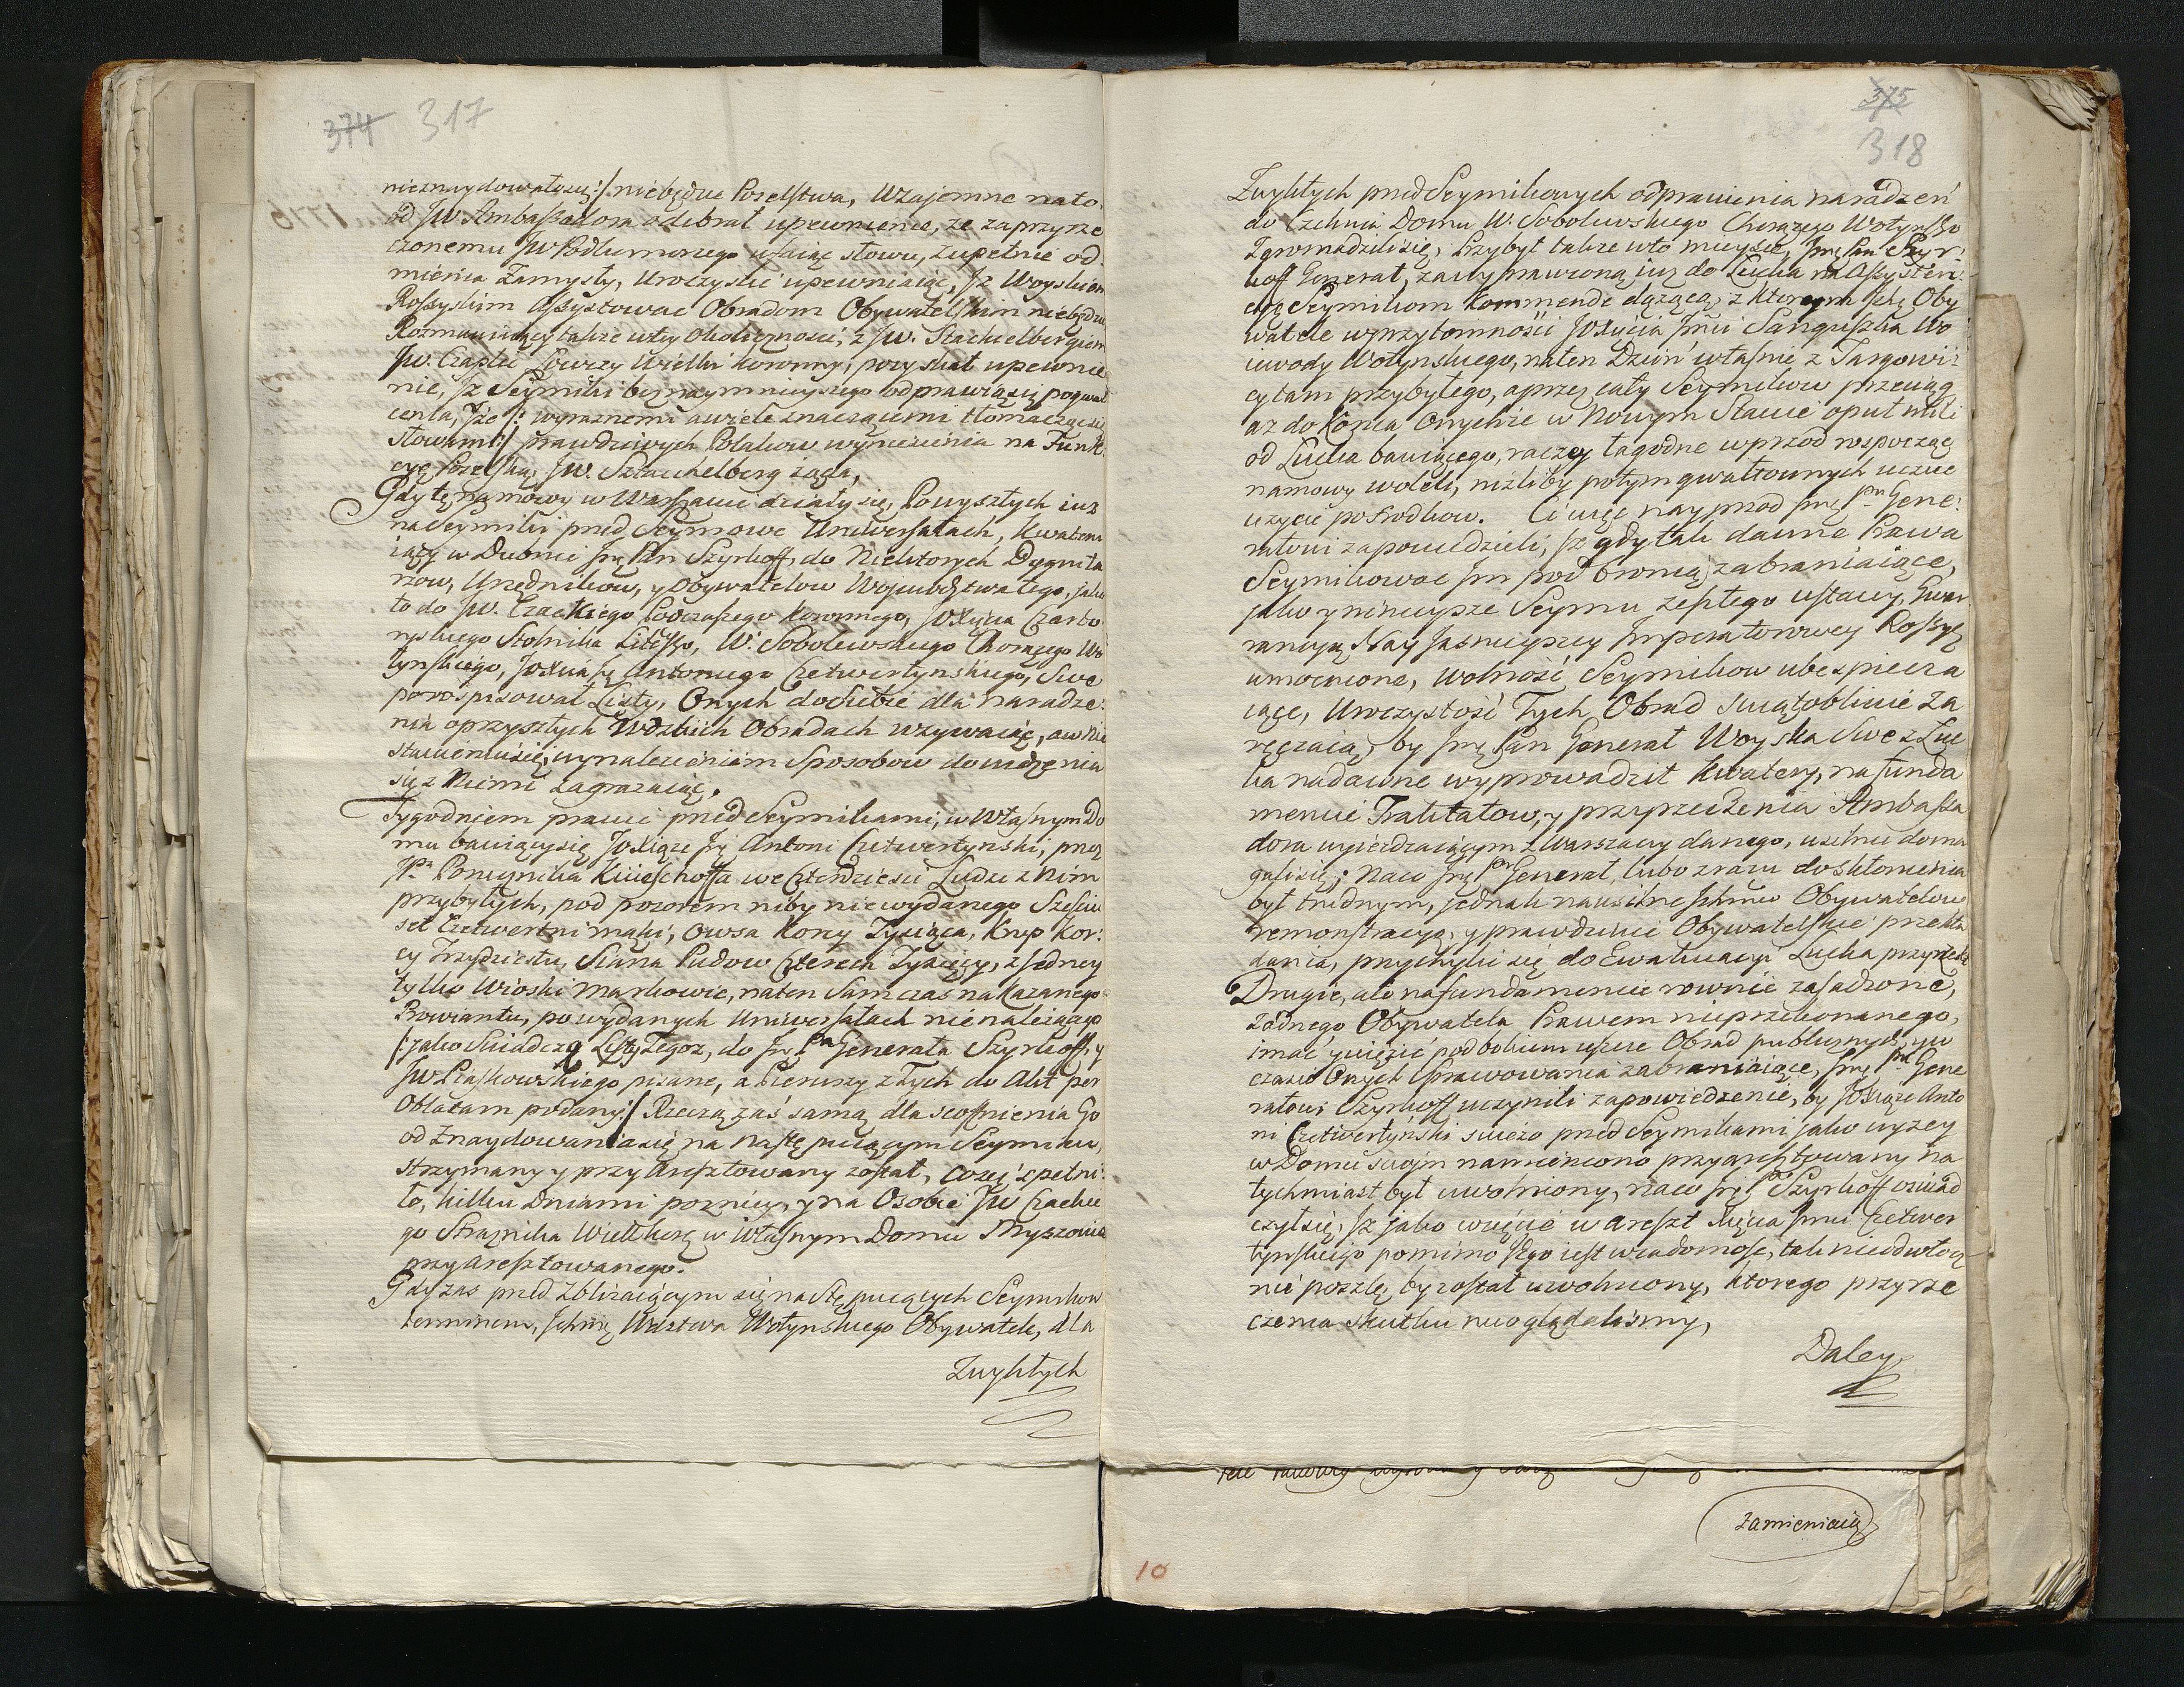 374 317
nieznaydowałosię:/ niebędzie Poselstwa, Wzajemne nato
od JW Ambaßadora odebrał upewnienie, że zaprzyrze
czonemu JW Podkomorzego ufaiąc słowu, zupełnie od
mienia Zamysły, Uroczyscie upewniaiąc, Jż Woyskiem
Roßyskim Assystowac Obradom Obywatelskim niebędzie
Rozmawiaiący takze wtey okoliczności, z JW. Stackelbergiem
JW. Czaplic Łowczy Wielki Koronny, pozyskał upewnie
nie, Jż Seymiki bez naymnieyszego odprawią się pogwał
cenia, Jże /: wyraznemi awiele znaczącemi tłomacząc się
słowami:/ prawdziwych Polakow wyniesienia na Funk
cyę Poselską, JW. Sztackelberg żąda,
Gdy tę namowy w Warszawie działy się, Powyszłych iuz
naSeymiki przed Seymowe Uniwersałach, Kwateru
iący w Dubnie Jmę Pan Szyrkoff, do Niektorych Dygnita
rzow, Urzędnikow, y Obywatelow Wojewodztwa tego, jako
to do JW. Czackiego Podczaszego Koronnego, JOXięcia Czarto
ryskiego Stolnika Littgo, W. Sobolewskiego Chorążego Wo
łynskiego, JoXcia Ję Antoniego Czetwertynskiego, Swe
porospisował Listy, Onych doSiebie dla naradze
nia oprzyszłych Wdzkich Obradach wzywaiąc, aw nie
stawiennosci, wynalezieniem Sposobow do widzenia
się z Niemi zagrażaiąc.
Tygodniem prawie przed Seymikami, w Własnym Do
mu bawiący się JoXiąże Ję Antoni Czetwertynski, przez
Pa Porucznika Kiiesckoffa we Czterdziesci Ludzi z nim
przybyłych, pod pozorem niby niewydanego Szesciu
set Czetwertni mąki, Owsa Korcy Tysiąca, Krup Kor:
cy Trzydziestu, Siana Pudow Czterech Tysięcy, z Jedney
tylko Wioski Markowic, naten Sam czas nakazanego
Prowiantu, po wydanych Uniwersałach nienależącego
/: jako Swiadczą Listy Tegoz, do Jmę Pa Generała Szyrkoff, y
JW Piaskowskiego pisane, a Pierwszy z Tych do Akt per
Oblatam podany:/ Rzeczą zaś samą dla scofnienia Go
od znaydowania się na następuiącym Seymiku,
strzymany y przy Aresztowany został, Coż się spełni:
ło, kilku Dniami pozniey, y na Osobie JW Czackie
go Straznika Wielk Korę w Własnym Domu Myszowie
przy aresztowanego.
Gdy zas przed Zblizaiącym się następuiących Seymikow
terminem, Jchmę Wdztwa Wołynskiego Obywatele, dla
Zwykłych
375
318
Zwykłych przedSeymikowych odprawienia naradzeń
do Czekna Domu W. Sobolewskiego Chorążego Wołynskgo
Zgromadzili się, Przybył takze wto mieysce, Jmę Pan Szyr:
koff Generał, za wyprawioną już do Łucka na Aßysten:
cyę Seymikom Kommendę dążąc, z ktorym Jchę Oby
watele wprzytomności JOXięcia Jmci Sanguszka Wo
iewody Wołynskiego, naten Dzień właśnie z Targowi:
cy tam przybyłego, aprzez cały Seymikow przeciąg
az do Konca Onychze w Nowym Stawie oput mili
od Łucka bawiącego, raczey łagodne wprzod rospocząc
namowy woleli, niżliby potym gwałtownych uczuc
uzycie posrodkow. Ci więc nayprzod Jmę Pn Gene:
rałowi zapowiedzieli, Jż gdy tak dawne Prawa
Seymikowac Jm pod bronią zabraniaiące,
jako y ninieysze Seymu zeszłego ustawy, Gwa
rancyą Nay Jasnieyszey Jmperatorowey Roßyi
umocnione, wolność Seymikow ubespiecza
iące, Uroczystość Tych Obrad swiątobliwie za
ręczaią, by Jmę Pan Generał Woyska Swe z Łuc
ka nadawne wyprowadził Kwatery, na funda
mencie Traktatow, y przyrzeczenia Ambaßa
dora wyiezdzaiącym z Warszawy danego, usilnie doma
gali się; Naco Jmę Pn Generał, lubo zrazu do skłonienia
był trudnym, jednak nausilne Jchmw Obywatelow
remonstracye, y prawdziwie Obywatelskie przekła
dania, przychylic się do Ewakuacyi Łucka przyrzekł
Drugie, ale na fundamencie rownie zasadzone,
żadnego Obywatela Prawem nieprzekonanego,
imać y więzić podbokiem ieszcze Obrad publicznych, y w
czasie Onych Sprawowania zabraniaiące, Jmę Pn Gene
rałowi Szyrkoff uczynili zapowiedzenie, by JoXiąże Anto
ni Czetwertyński swieżo przed Seymikami jako wyzey
w Domu swoim namieniono przyaresztowany na
tychmiast był uwolniony, naco Jmę Pn Szyrkoff oswiad
czył się, Jż jako wzięcie w areszt Xięcia Jmci Czetwer
tynskiego pomimo Jego iest wiadomość, tak nieodwłocz
nie poszlę, by został uwolniony, ktorego przyrze
czenia skutku nieoglądaliśmy,
Daley
Zamieniaią
10